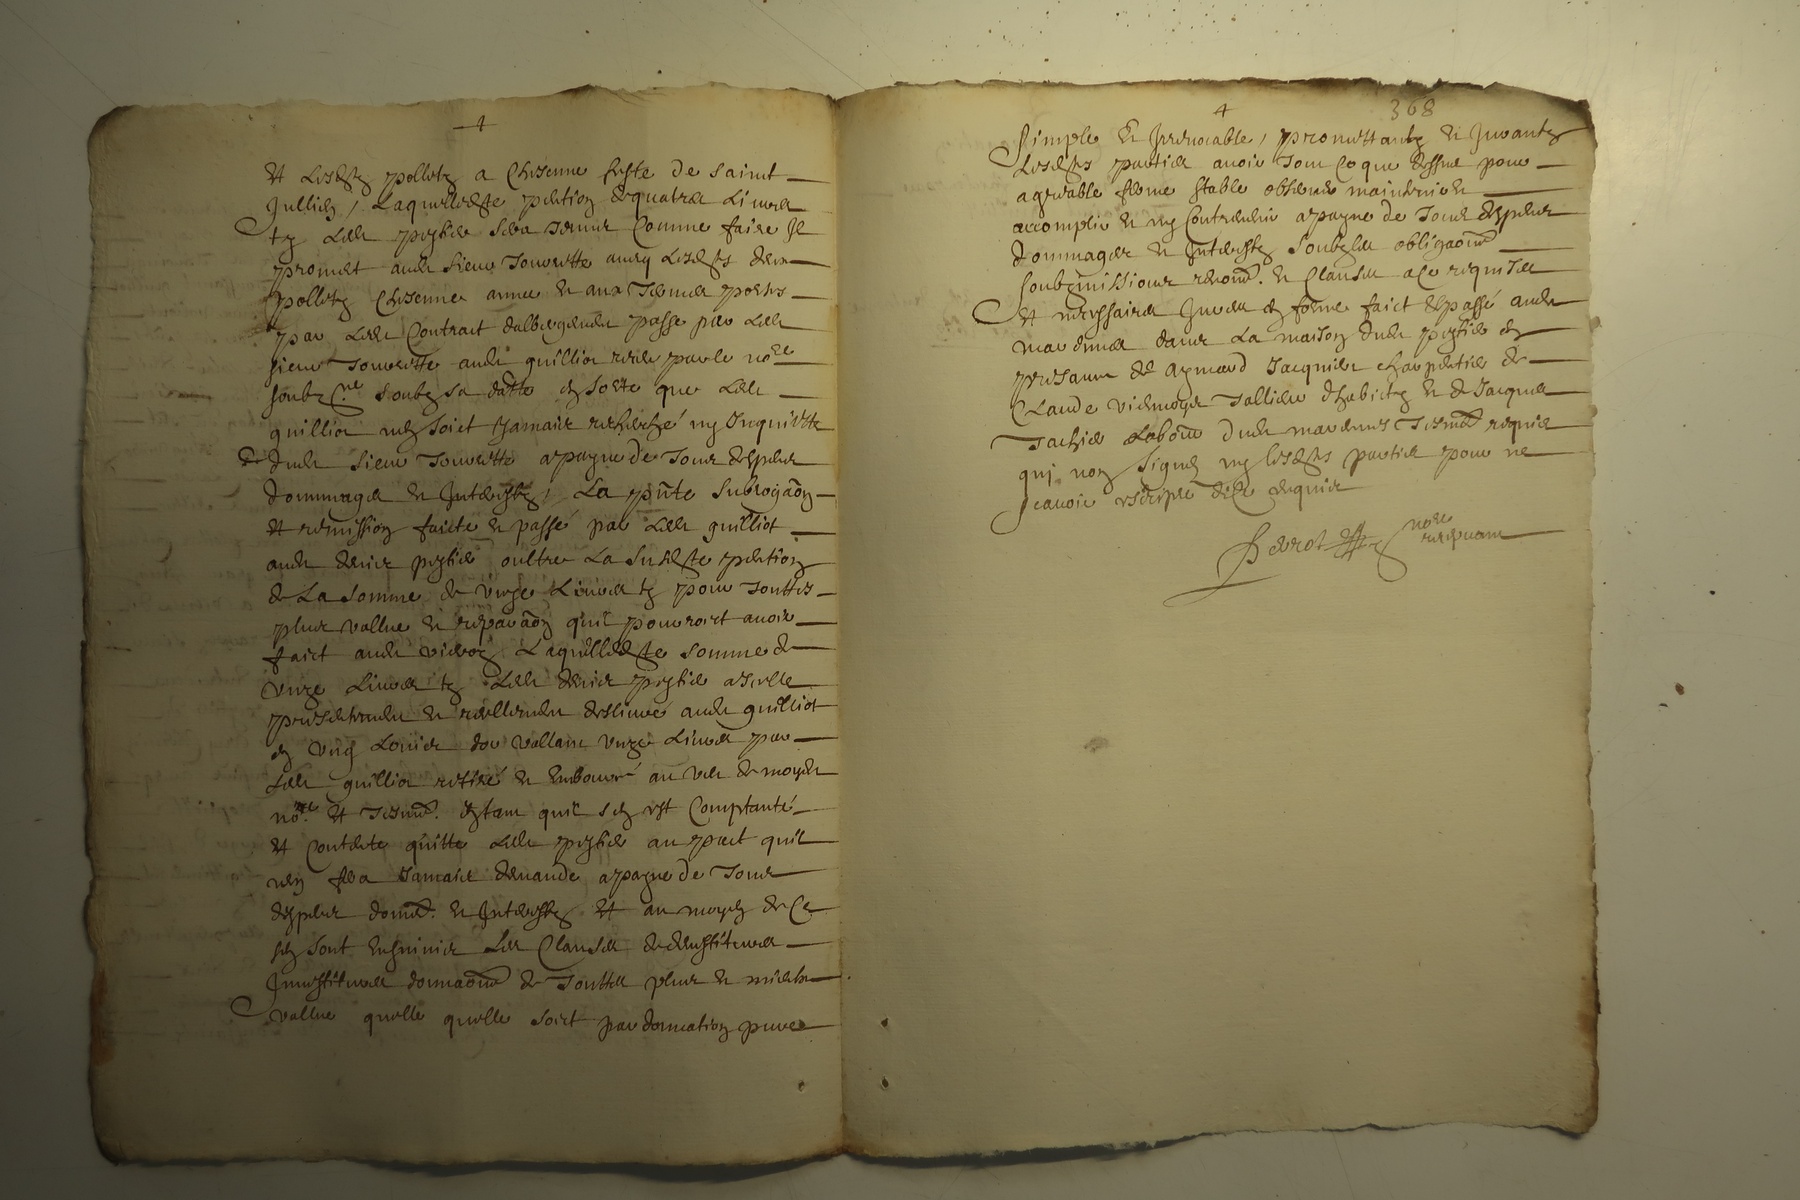 4
et lesdts polletz a chesenne feste de saint
Jullien, laquelledste pention de quatre livres
tz ledt pertier sera tenus comme faire Il
promet audt sieur Tourette avecq lesdts deux
polletz chesenne annee et aux termes portés
par ledt contract dalbergement passe par ledt
sieur Tourette audt guilliot receu par le nore
soubzne soubz sa datte en sorte que ledt
guilliot nen soict Jamais recherché ny Inquietté
dudt sieur Tourette a payne de tous despens
dommages et Interestz, La pnte subrogaon
et remission faicte et passé par ledt guilliot
audt denier oultre La susdste pention
de La somme de unze Livres tz pour touttes
plus vallue et reparaon quil pourroict avoir
faict audt Laquelledste somme de
unze Livres tz ledt denier a
presentement et reellement deslivré audt guilliot
en ung Louis dor vallant unze Livres par
ledt guilliot retiré et embourcé au veu de moydt
nore et tesmo. estant quil sen est Comptanté
et contente quitte ledt au pact quil
nen fera Jamais demande a payne de tous
despens domma. et Interestz Et au moyen de ce
sen sont ensuivies les clauses de devestitures
Investitures donnaons de touttes plus et mieux
vallue quelle quelle soict par donnation pure
4
368
simple et Irrevocable, promettantz et Jurantz
lesdts parties avoir tout ce que dessus pour
agreable ferme stable observer maintenir et
accomplir et ny contrevenir a payne de tous despens
dommages et Interestz soubz les obligaons
soubzmissions renons. et clauses a ce requises
et necessaires Jurees en forme faict et passé audt
mardenus dans La maison dudt en
presance de Aymard Jacquier charpentier de
Claude tallieur dhabictz et de Jacques
Labour dudt mardenus Tesmo requis
qui non signes ny lesdts parties pour ne
scavoir escripre de ce enquis
Perrot nore
recepvant